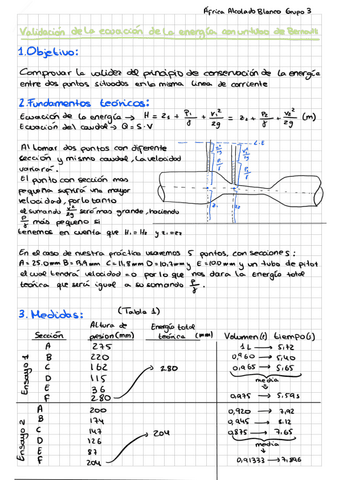 África Alcolado Blanco Grupo 3
Validación de la ecuación de la energía con un tubo de Bernoulli
1. Objetivo:
Comprobar la validez del principio de conservación de la energía
entre dos puntos situados en la misma línea de corriente
2. Fundamentos teóricos:
Ecuación de la energía → H = z₁ + P₁/γ + v₁²/2g = z₂ + P₂/γ + v₂²/2g (m)
Ecuación del caudal → Q = S·V
Al tomar dos puntos con diferente
sección y mismo caudal, la velocidad
variará.
El punto con sección más
pequeña sufrirá un mayor
velocidad, por lo tanto
el sumando v²/2g será más grande, haciendo
P/γ más pequeno si
tenemos en cuenta que H₁ = H₂ y z₁ = z₂
En el caso de nuestra práctica usaremos 5 puntos, con secciones:
A = 25.0mm B = 13.9mm C = 11.8mm D = 10.7mm y E = 10.0mm y un tubo de pitot
el cual tendrá velocidad = 0 por lo que nos dara la energía total
teórica que será igual a su sumando P/γ.
3. Medidas:
(Tabla 1)
Sección Altura de presion (mm) Energía total teórica (mm) Volumen (l) tiempo (s)
Ensayo 1
A 275 1L → 5.72
B 220 0,960 → 5,40
C 162 → 280 0,965 → 5,65
D 115 media
E 36
F 280 0,975 → 5.593
Ensayo 2
A 200 0,920 → 7,92
B 174 0,945 → 8.12
C 147 → 204 0,875 → 7.65
D 126 media
E 87
F 204 0,91333 → 7,896